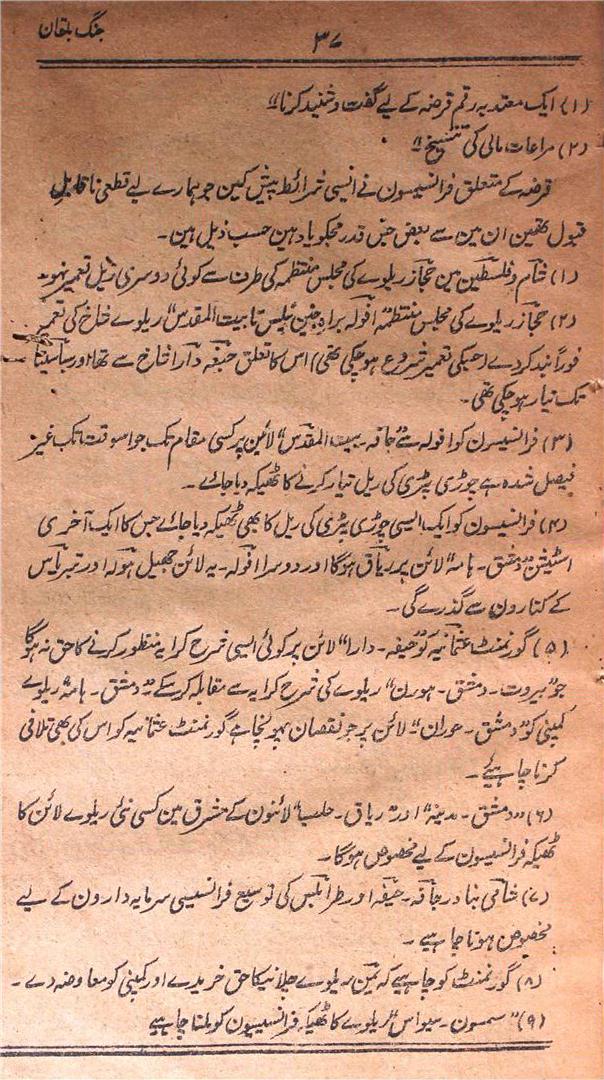 جنگ بلقان
۳۷
(۱) ایک معتد بہ رقم قرضہ کے لیے گفت و شنید کرنا"
(۲) مراعات مالی کی تنسیخ"
قرضہ کے متعلق فرانسیسون نے ایسی شرائط پیش کین جو ہمارے لیے قطعی ناقابل
قبول تھین ان مین سے بعض جس قدر مجکو یاد ہین حسب ذیل ہین۔
(۱) شام و فلسطین مین حجاز ریلوے کی مجلس منتظمہ کی طرف سے کوئی دوسری ریل تعمیر نہو۔
(۲) حجاز ریلوے کی مجلس منتظمہ "افولہ براہ جنین نبلس تا بیت المقدس" ریلوے شاخ کی تعمیر
فوراً بند کردے (جسکی تعمیر شروع ہوچکی تھی) اس کا تعلق حیفہ دارا شاخ سے تھا اور
تک تیار ہوچکی تھی۔
(۳) فرانسیسون کو افولہ سے "جافہ۔ بیت المقدس" لائین پر کسی مقام تک جو اسوقت تک غیر
فیصل شدہ ہے چوڑی پٹری کی ریل تیار کرنے کا ٹھیکہ دیا جائے۔
(۴) فرانسیسون کو ایک ایسی چوڑی پٹری کی ریل کا بھی ٹھیکہ دیا جائے جس کا ایک آخری
اسٹیشن "دمشق۔ ہامہ" لائن پر ریاق ہوگا اور دوسرا افولہ۔ یہ لائن جھیل ہولہ اور تبریاس
کے کنارون سے گذرے گی۔
(۵) گورنمنٹ عثمانیہ کو "حیفہ۔ دارا" لائن پر کوئی ایسی شرح کرایہ منظور کرنے کا حق نہ ہوگا
جو "بیروت۔ دمشق۔ ہورن" ریلوے کی شرح کرایہ سے مقابلہ کرسکے "دمشق۔ ہامہ" ریلوے
کمپنی کو "دمشق۔ حوران" لائن پر جو نقصان پہونچا ہے گورنمنٹ عثمانیہ کو اس کی بھی تلافی
کرنا چاہیئے۔
(۶) "دمشق۔ مدینہ" اور "ریاق۔ حلب" لائنون کے مشرق مین کسی نئی ریلوے لائن کا
ٹھیکہ فرانسیسون کے لیے مخصوص ہوگا۔
(۷) شامی بنادر جافہ۔ حیفہ اور طرابلس کی توسیع فرانسیسی سرمایہ دارون کے لیے
مخصوص ہونا چاہیے۔
(۸) گورنمنٹ کو چاہیے کہ یمن ریلوے چلانیکا حق خریدے اور کمپنی کو معاوضہ دے۔
(۹) "سمسون۔ سیواس" ریلوے کا ٹھیکہ فرانسیسون کو ملنا چاہیے